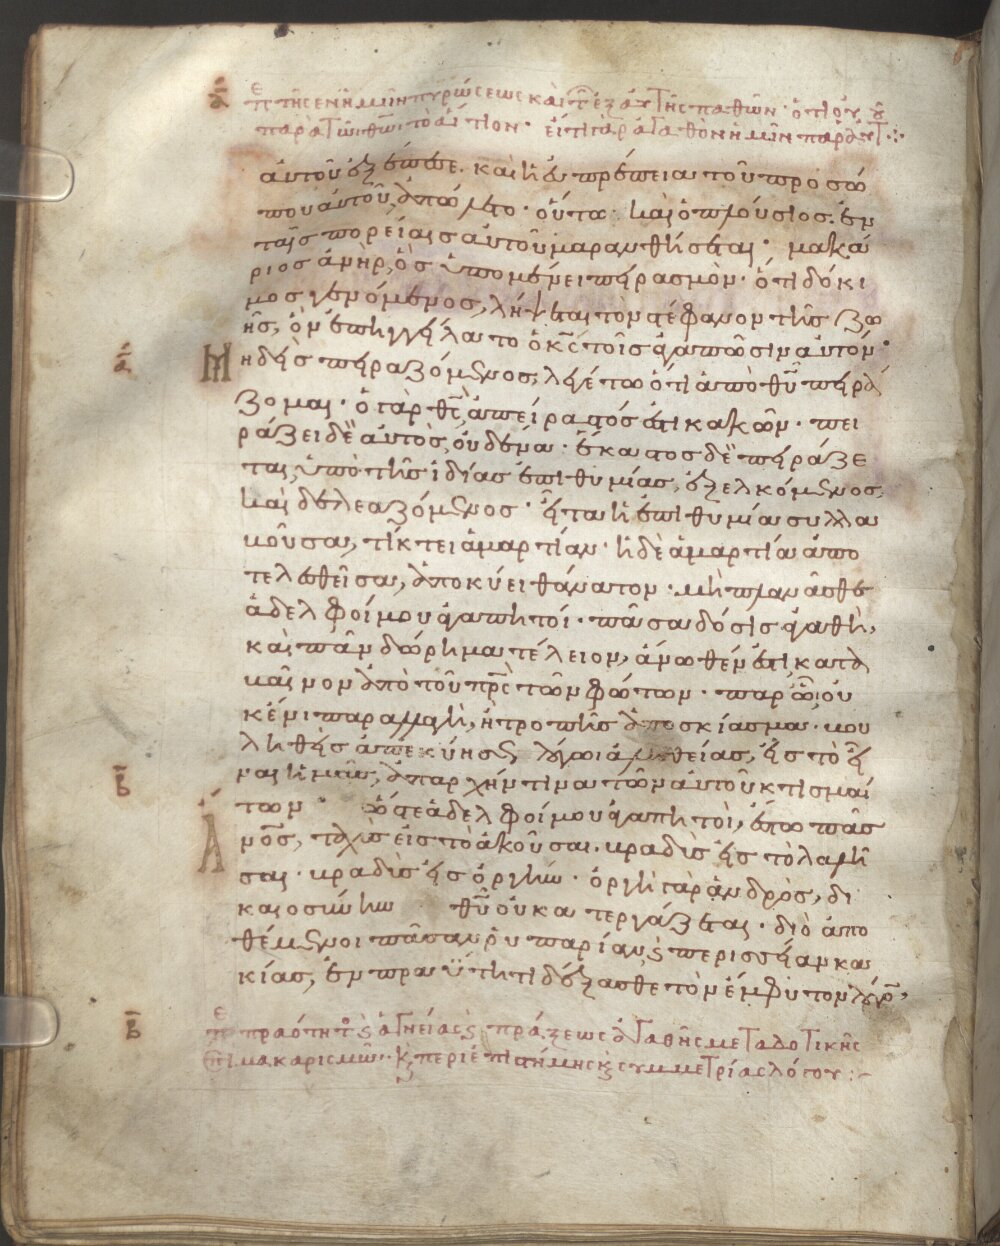 α Πε τῆς ἐν ἡμῖν πυρώσεως καὶ τῶν ἐξ αὐτῆς παθῶν· ὅτι οὐ
παρὰ τῷ θῶ τὸ αἴτιον· εἴ τι γὰρ ἀγαθὸν ἡμῖν παρ αὐτ
αὐτοῦ ἐξέπεσε. καὶ ἡ εὐπρέπεια τοῦ προσώ
που αὐτοῦ, ἀπώλετο· οὕτω καὶ ὁ πλούσιος ἐν
ταῖς πορείαις αὐτοῦ μαρανθήσεται· μακά
ριος ἀνὴρ, ὃς ὑπομένει πειρασμὸν· ὅτι δόκι
μος γενόμενος, λήψεται τὸν στέφανον τῆς ζω
ῆς, ὃν ἐπηγγείλατο ὁ κς τοῖς ἀγαπῶσιν αὐτόν·
α Μηδεὶς πειραζόμενος, λεγέτω ὅτι ἀπὸ θυ πειρά
ζομαι· ὁ γὰρ θς ἀπείραστός ἐστι κακῶν· πει
ράζει δὲ αὐτὸς, οὐδένα· ἕκαστος δὲ πειράζε
ται, ὑπὸ τῆς ἰδίας ἐπιθυμίας, ἐξελκόμενος,
καὶ δελεαζόμενος· εἶτα ἡ ἐπιθυμία συλλα
βοῦσα, τίκτει ἁμαρτίαν· ἡ δὲ ἁμαρτία ἀπο
τελεσθεῖσα, ἀποκύει θάνατον· μὴ πλανᾶσθε
ἀδελφοί μου ἀγαπητοί· πᾶσα δόσις ἀγαθὴ,
καὶ πᾶν δώρημα τέλειον, ἄνωθέν ἐστι, κατα
βαῖνον ἀπὸ τοῦ πρς τῶν φώτων· παρ ᾧ οὐ
κ ἔνι παραλλαγὴ, ἢ τροπῆς ἀποσκίασμα· βου
ληθεὶς ἀπεκύησεν λόγω ἀληθείας, εἰς τὸ εἶ
ναι ἡμᾶς, ἀπαρχήν τινα τῶν αὐτοῦ κτισμά
β των· ὥστε ἀδελφοί μου ἀγαπητοὶ, ἔστω πᾶς
ανος, ταχὺς εἰς τὸ ἀκοῦσαι. βραδὺς εἰς τὸ λαλῆ
σαι· βραδὺς εἰς ὀργὴν· ὀργὴ γὰρ ἀνδρὸς, δι
καιοσύνην θυ οὐ κατεργάζεται· διὸ ἀπο
θέμενοι πᾶσαν ῥυπαρίαν καὶ περισσείαν κα
κίας, ἐν πραΰτητι δέξασθε τὸν ἔμφυτον λόγον,
β Πε πραότητος καὶ ἁγνείας καὶ πράξεως ἀγαθῆς μεταδοτικῆς
ἐπὶ μακαρισμῷ· καὶ περὶ ἐπιστήμης καὶ συμμετρίας λόγου: